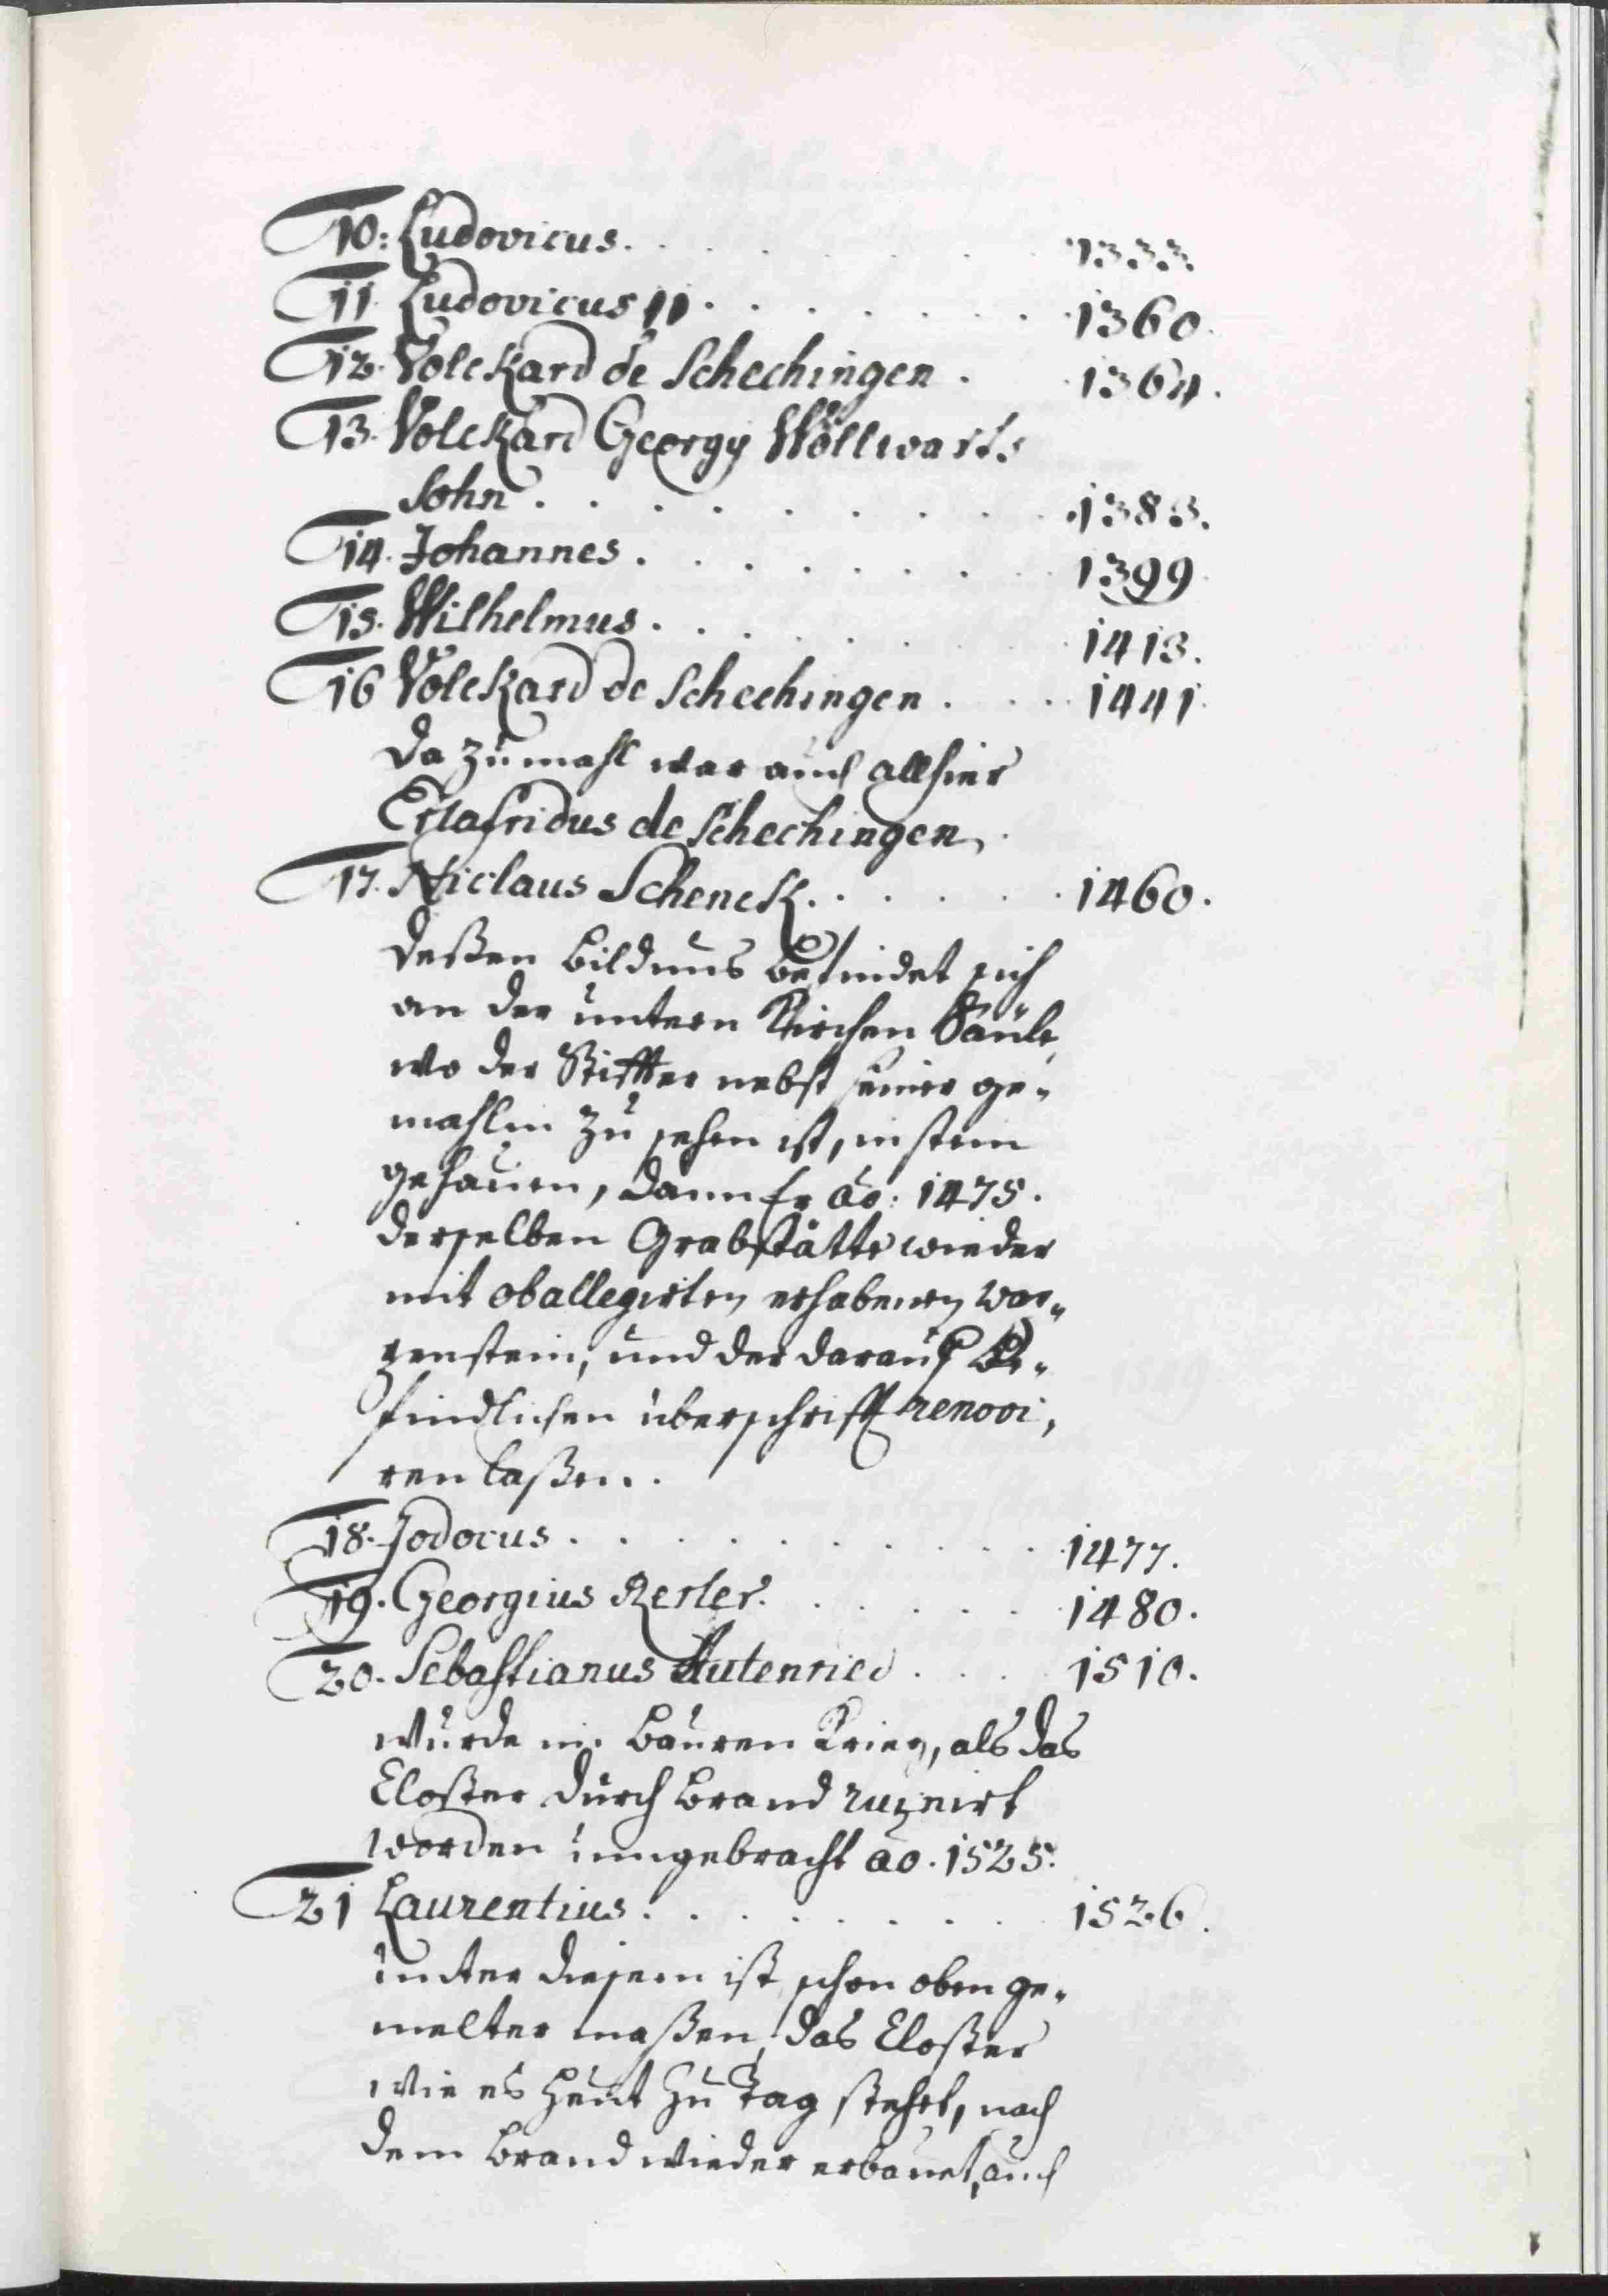 10. Ludovicus. . . . . . . 1333.
11. Ludovicus II. . . . . . . 1360.
12. Volckard de Schechingen . 1364.
13. Volckard Georgy Wöllwarts
Sohn . . . . . . . . 1383.
14. Johannes . . . . . . . 1399
15. Wilhelmus . . . . . . 1413.
16 Volckard de Schechingen . . . 1441.
da zumahl war auch allhier
Erlafridus de Schechingen.
17. Niclaus Schenck. . . . . . 1460.
deßen Bildnus befindet sich
an der untern Kirchen Säule,
wo der Stiffter nebst seiner ge-
mahlin zu sehen ist, in stein
gehauen, dann Er ao: 1475.
derselben Grabstätte wieder
mit oballegirten erhabenen War-
zenstein, und der darauf be-
findlichen überschrifft renovi-
ren laßen.
18. Jodocus . . . . . . . . . 1477.
19. Georgius Kerler. . . . . . 1480.
20. Sebastianus Autenried . . . 1510.
wurde im Bauren Krieg, als das
Closter durch brand ruinirt
worden umgebracht ao. 1525.
21 Laurentius . . . . . . . . 1526.
unter diesem ist schon oben ge-
melter maßen, das Closter
wie es heut zu Tag stehet, nach
dem brand wieder erbauet, auch